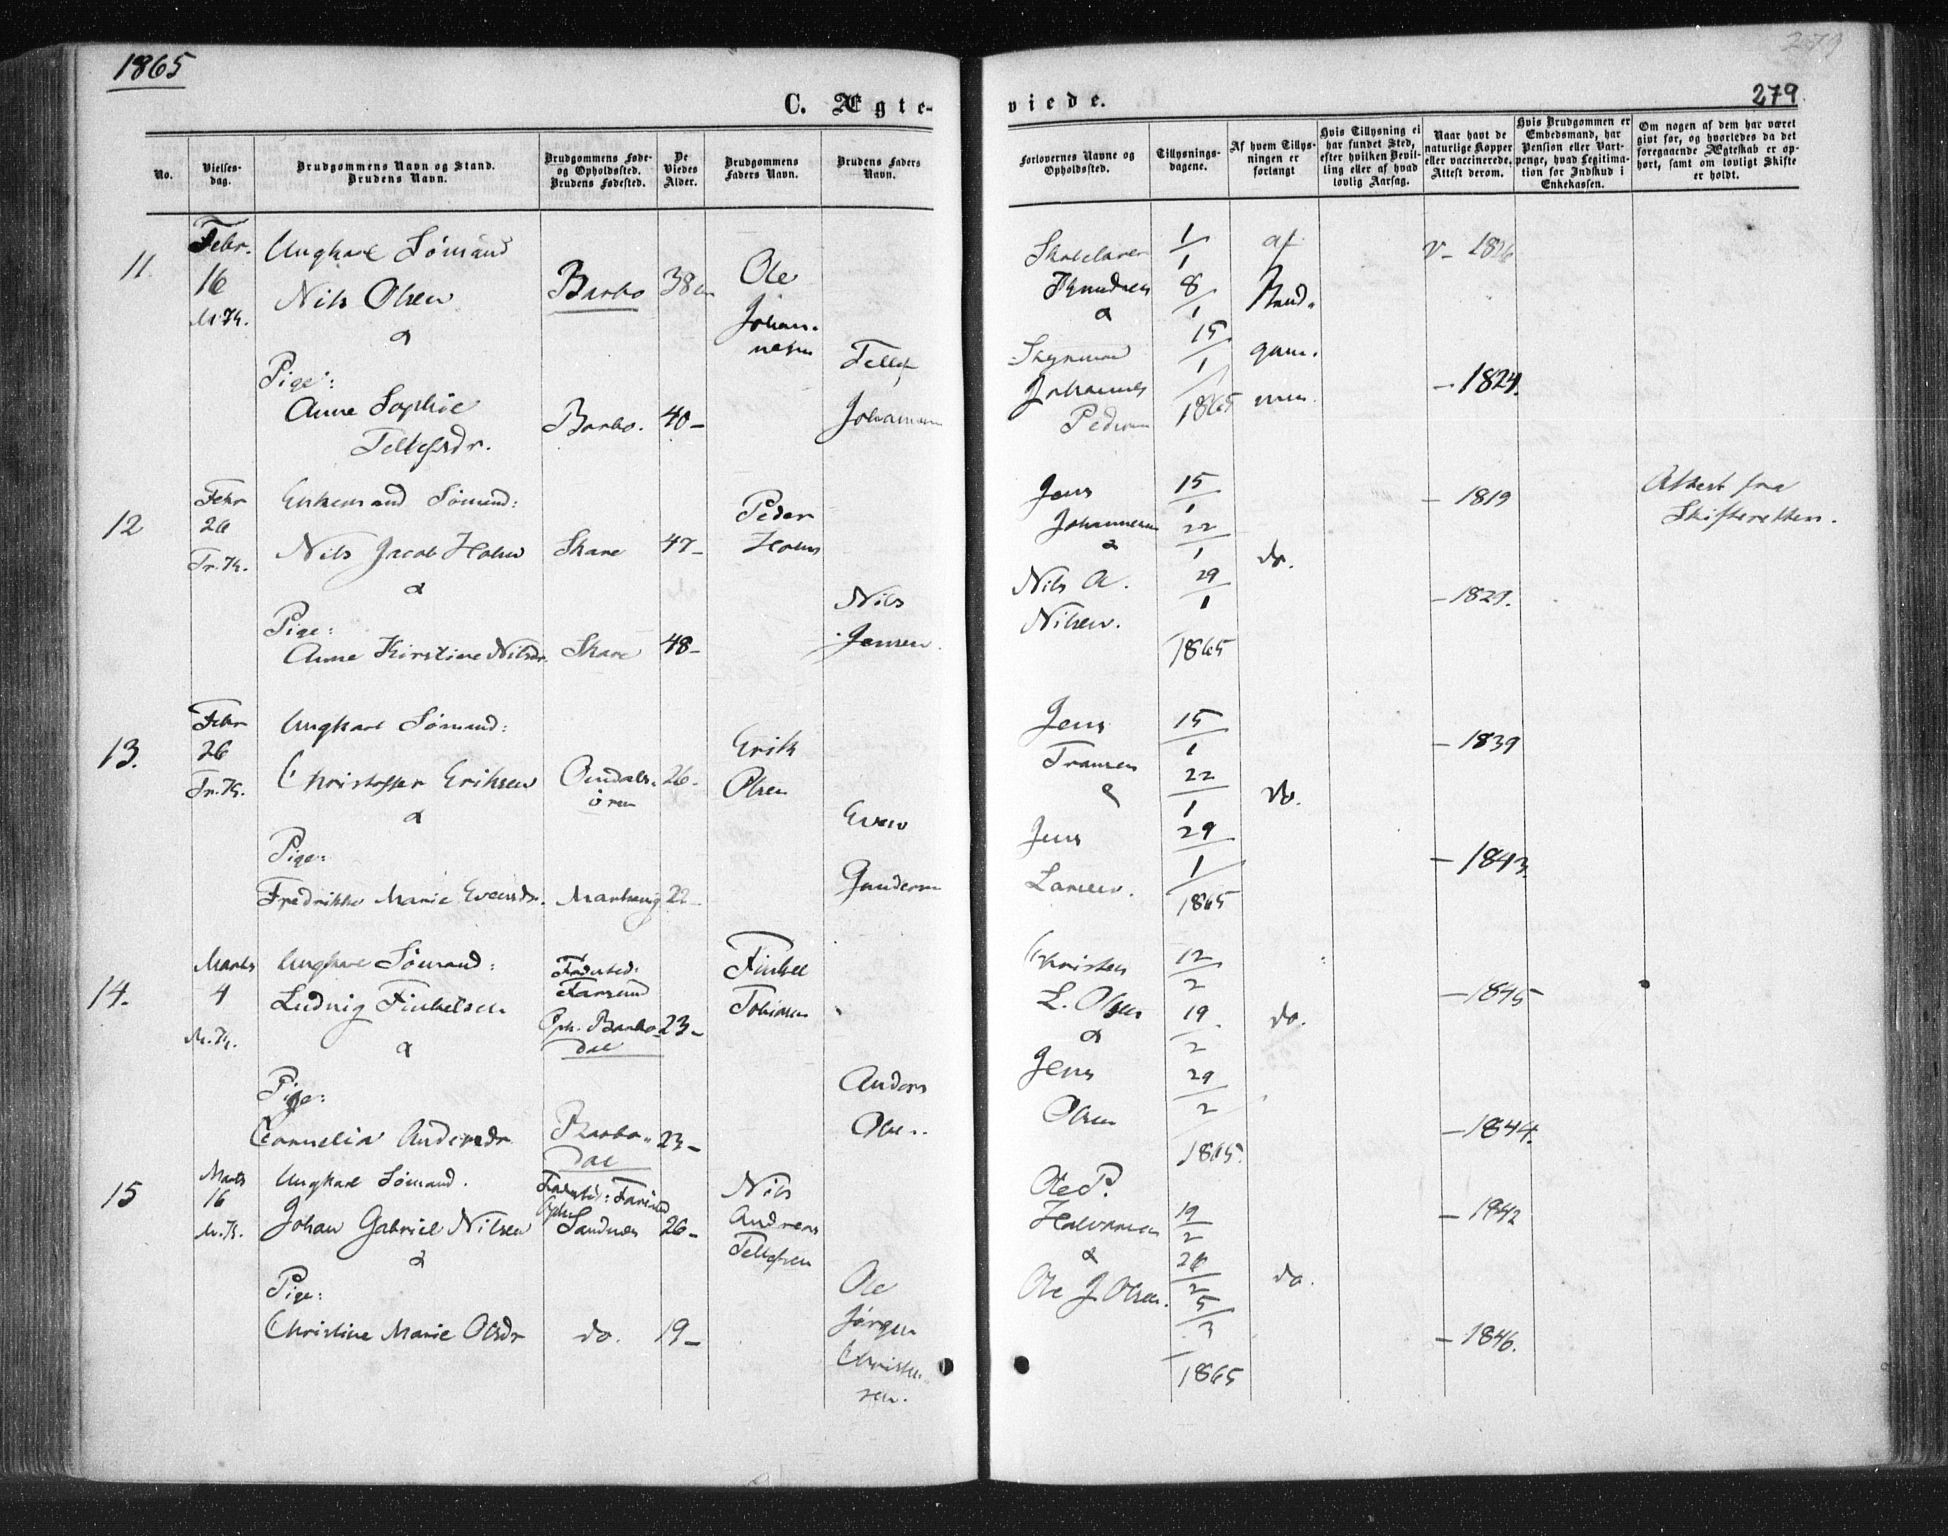 1865
279
279
C. Ægte-
viede.
No.
Vielses-
dag.
Brudgommens Navn og Stand.
Brudens Navn.
Brudgommens Føde-
og Opholdssted.
Brudens Fødested.
De
Viedes
Alder.
Brudgommens
Faders Navn.
Brudens Faders
Navn.
Forlovernes Navne og
Opholdssted.
Tillysnings-
dagene.
Af hvem Tillys-
ningen er
forlangt
Hvis Tillysning ei
har fundet Sted,
efter hvilken Bevil-
ling eller af hvad
lovlig Aarsag.
Naar havt de
naturlige Kopper
eller vaccinerede.
Attest derom.
Hvis Brudgommen er
Embedsmand, har
Pension eller Vart-
penge, hvad Legitima-
tion for Indskud i
Enkekassen.
Om nogen af dem har været
gift før, og hvorledes da det
foregaaende Ægteskab er op-
hørt, samt om lovligt Skifte
er holdt.
11.
Febr.
16
M.K.
Ungkarl Sømand
Nils Olsen
&
Pige:
Anne Sophie
Tellefsdr.
Barbo
38
Barbo.
40-
Ole
Johan-
nesen
Tellef
Johannesen
Knudsen
&
Johannes
Pedersen
1/1
8/1
15/1
1865
af
Brud-
gom-
men
v- 1826
- 1824.
12
Febr
26
Tr.K.
Enkemand Sømand:
Nils Jacob Holm
&
Pige:
Anne Kirstine Nilsdr.
Skare
47-
Skare
48-
Peder
Holm
Nils
Jensen.
Jens
Johannesen
&
Nils A.
Nilsen.
15/1
22/1
29/1
1865
do.
- 1819
- 1829.
Attest fra
Skifteretten.
13.
Febr
26
Tr.K.
Ungkarl Sømand:
Christoffer Eriksen
&
Pige:
Fredrikke Marie Evensdr.
26-
22-
Erik
Olsen
Even
Gundersen
Jens
Transen
&
Jens
Larsen.
15/1
22/1
29/1
1865
do.
- 1839
- 1843.
14.
Marts
4
M.K.
Ungkarl Sømand:
Ludvig Finkelsen
&
Pige:
Cornelia Andersdr
Fødested:
Farsund
Oph. Barbo-
dal
23-
Barbo-
dal
23-
Finkel
Tobiasen
Anders
Olsen.
Christen
L. Olsen
&
Jens
Olsen
12/2
19/2
29/2
1865.
do.
- 1845
- 1844.
15
Marts
16
M.K.
Ungkarl Sømand.
Johan Gabriel Nilsen
&
Pige:
Christine Marie Olsdr
Fødested: Farsund
Oph.
Sandnes
26-
do.
19-
Nils
Andreas
Tellefsen
Ole
Jørgen
Christen-
sen.
Ole P.
Halvorsen
&
Ole J. Olsen.
19/2
26/2
5/3
1865
do.
- 1842
- 1846.